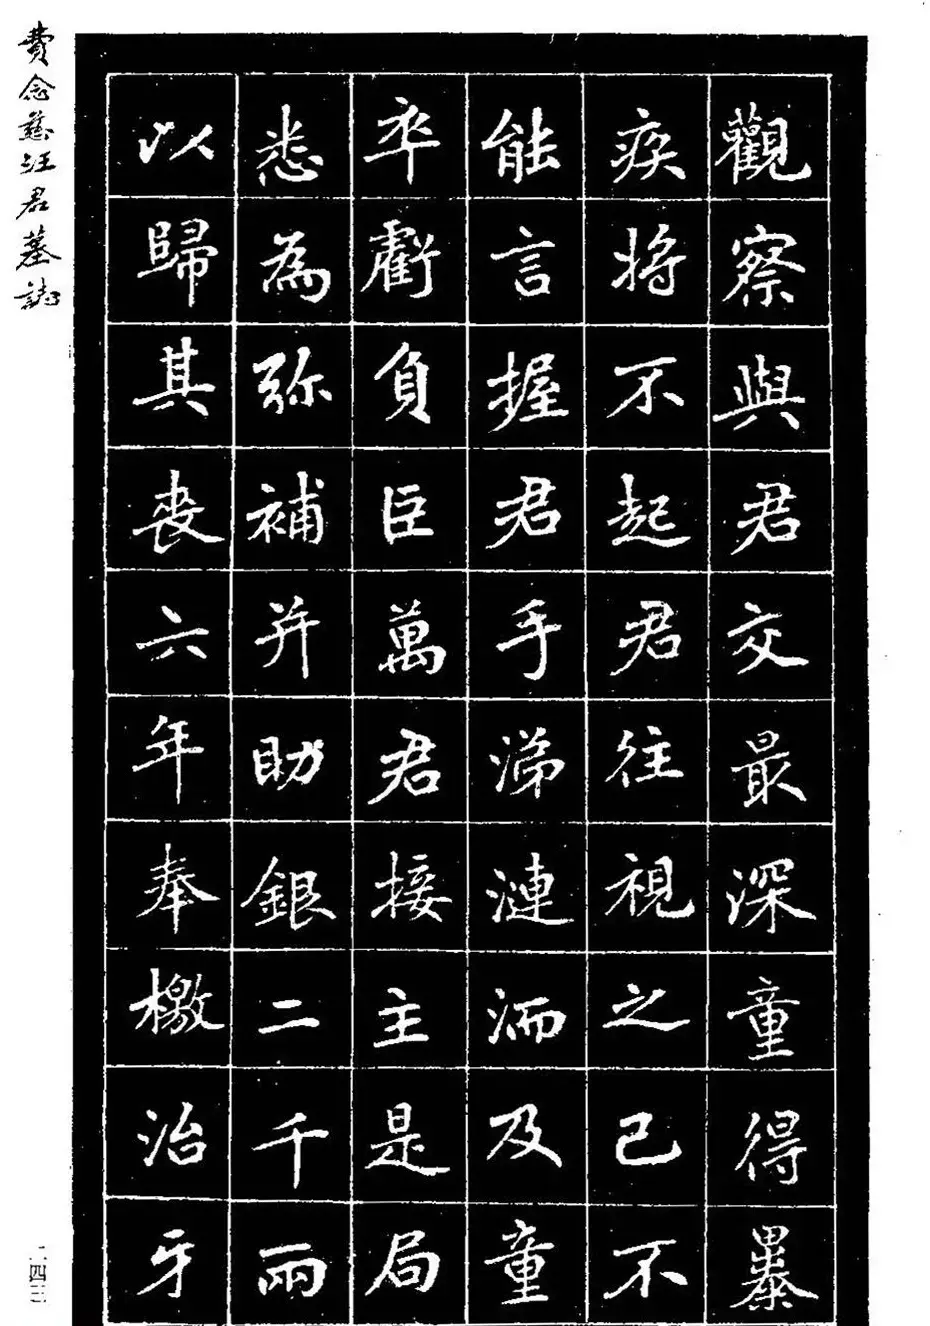 觀察與君交最深童得暴
疾將不起君往視之已不
能言握君手涕漣洏及童
卒虧負臣萬君接主是局
悉為弥補并助銀二千兩
以歸其喪六年奉檄治牙
費念慈汪君墓誌
二四三